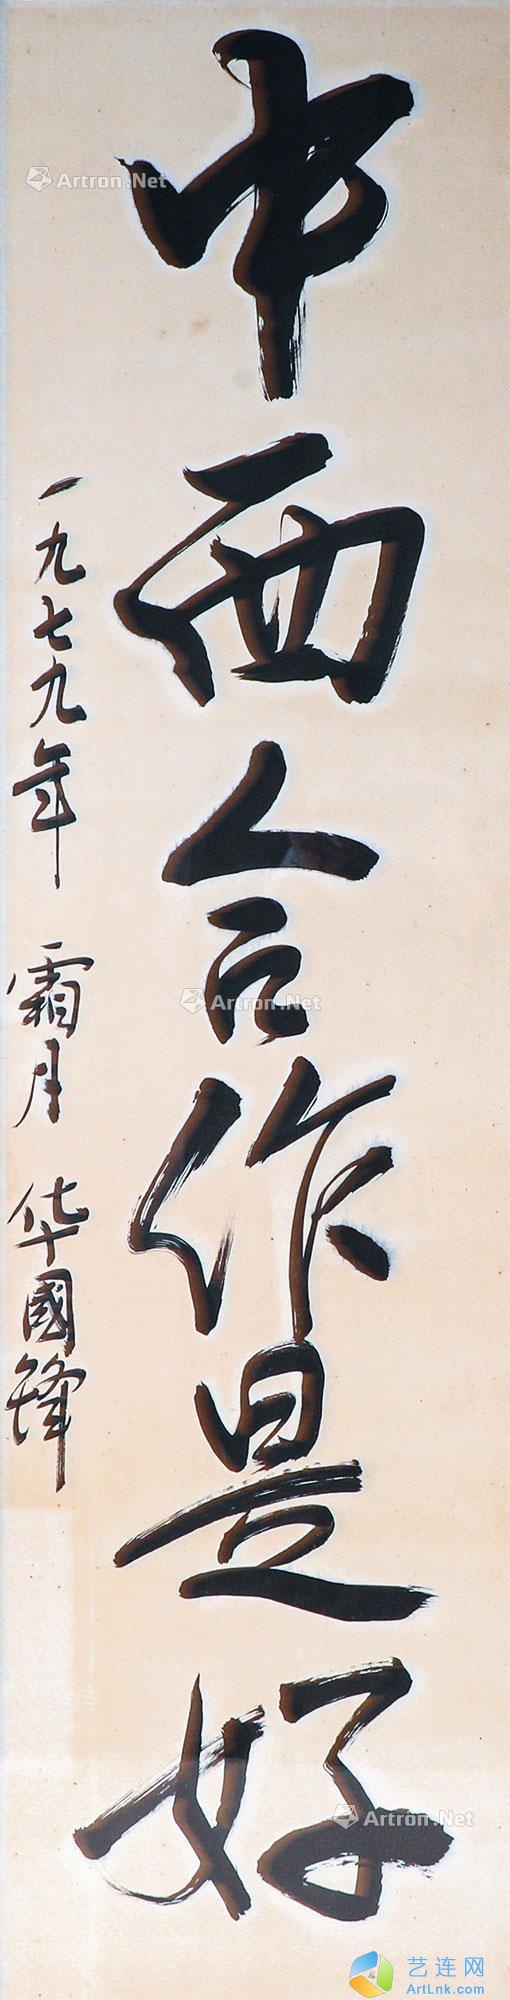 中西合作是好
一九七九年 霜月 华國锋
Artron.Net
Artron.Net
Artron.Net
艺连网
ArtLnk.com